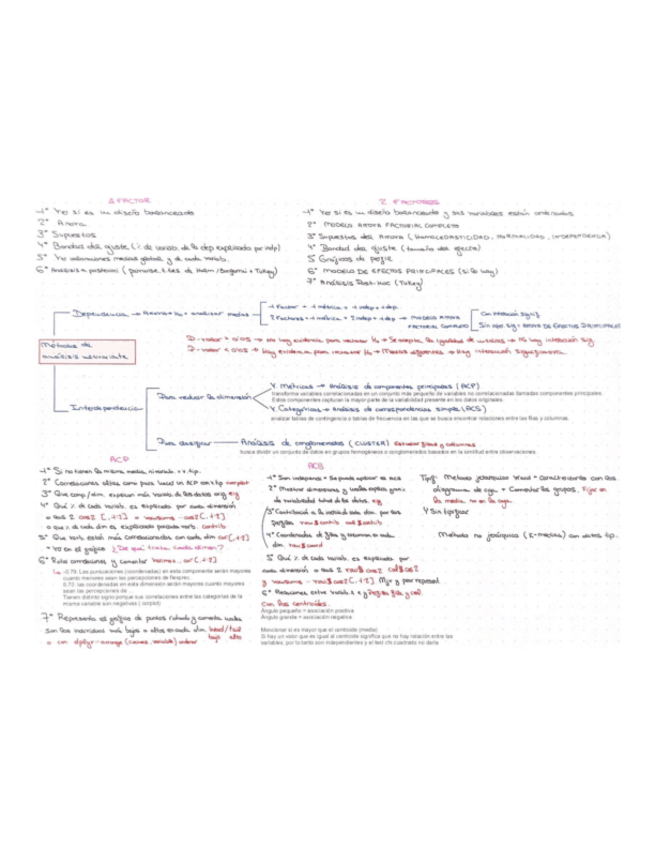 1 FACTOR
1º Ver si es un diseño balanceado
2º Anova
3º Supuestos
4º Bondad del ajuste (% de variab. de la dep explicada por indp)
5º Ver estimaciones medias global y de cada variab.
6º Análisis a posteriori (pairwise.t.test de Holm/Bonferroni + Tukey)
2 FACTORES
1º Ver si es un diseño balanceado y sus variables están ordenadas
2º MODELO ANOVA FACTORIAL COMPLETO
3º Supuestos del ANOVA (HOMOCEDASTICIDAD, NORMALIDAD, INDEPENDENCIA)
4º Bondad del ajuste (tamaño del efecto)
5 Gráficos de perfil
6º MODELO DE EFECTOS PRINCIPALES (si lo hay)
7º Análisis Post-Hoc (Tukey)
Métodos de análisis
Dependencia → Anova → analizar medias
1 Factor → 1 métrica + 1 indep + 1 dep
2 Factores → 1 métrica + 2 indep + 1 dep → MODELO ANOVA FACTORIAL COMPLETO
Con interacción sig.
Sin inter sig → ANOVA DE EFECTOS PRINCIPALES
P-valor > 0'05 → No hay evidencia para rechazar H₀ → Se acepta la igualdad de medias → No hay interacción sig.
P-valor < 0'05 → Hay evidencia para rechazar H₀ → Medias diferentes → Hay interacción significativa
Interdependencia
Para reducir la dimensión
V. Métricas → Análisis de componentes principales (ACP)
transforma variables correlacionadas en un conjunto más pequeño de variables no correlacionadas llamadas componentes principales.
Estos componentes capturan la mayor parte de la variabilidad presente en los datos originales.
V. Categóricas → Análisis de correspondencias simple (ACS)
analizar tablas de contingencia o tablas de frecuencia en las que se busca encontrar relaciones entre las filas y columnas.
Para clasificar
Análisis de conglomerados (CLUSTER)
busca dividir un conjunto de datos en grupos homogéneos o conglomerados basados en la similitud entre observaciones
ACP
1º Si no tienen la misma media, ni variab. → tip.
2º Correlaciones altas como para hacer un ACP con tip
3º Que comp/dim. explican más variab. de los datos orig eig
4º Qué % de cada variab. es explicado por cada dimensión
o las 2 cos2 [,1:2] o rowsums - cos2[,1:2]
o que % de cada dim es explicado por cada variab. contrib
5º Que variab. están más correlacionadas con cada dim cor[,1:2]
+ ver en el gráfico ¿De qué trata cada dimen.?
6º Rotar correlaciones y comentar varimax... cor[,1:2]
-0.79: Las puntuaciones (coordenadas) en esta componente serán mayores
cuanto menores sean las percepciones de flexprec
0.70: las coordenadas en esta dimensión serán mayores cuanto mayores
sean las percepciones de ...
Tienen distinto signo porque sus correlaciones entre las categorías de la
misma variable son negativas ( corrplot)
7º Representa el gráfico de puntos rotado y comenta cuales
son los individuos más bajos o altos en cada dim. head/tail
o con dplyr → arrange(
ACS
1º Son independ → Se puede aplicar el acs
2º Mostrar dimensiones y cuales explica gran %
de variabilidad total de los datos. eig
3º Contribución a la inercia de cada dim. por los
perfiles row$contrib col$contrib
4º Coordenadas de filas y columnas en cada
dim. row$coord
5 Qué % de cada variab. es explicado por
cada dimensión o las 2 row$cos2 col$cos2
y rowsums - row$cos2[,1:2] Mejor y peor represent.
6º Relaciones entre variab. y perfiles fila y col
Con los centroides.
Ángulo pequeño = asociación positiva
Ángulo grande = asociación negativa
Mencionar si es mayor que el centroide (media)
Si hay un valor que es igual al centroide significa que no hay relación entre las
variables, por lo tanto son independientes y el test chi cuadrado no daría
Tipf: Método jerárquico Ward + Características con los
diagramas de caja + Comentar los grupos. Fijar en
la media, no en la caja.
Y Sin tipificar
Método no jerárquico (K-medias) con datos tip.